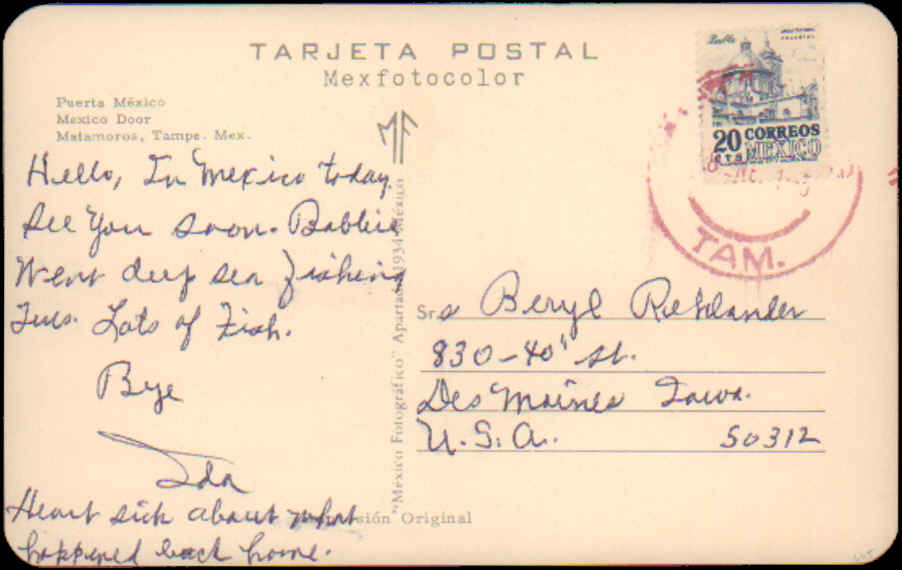 TARJETA POSTAL
Mexfotocolor
Puerta México
Mexico Door
Matamoros, Tamps. Mex.
MF
Hello, In Mexico today.
See You soon. Bobbie
Went deep sea fishing
Tues. Lots of Fish.
Bye
Ida
Heart sick about what
happened back home.
"México Fotográfico" Apartado 1934 México
Original
20 CORREOS
CTS MEXICO
TAM.
Srs Beryl
830-40" St.
Des Moines Iowa.
U.S.A. 50312